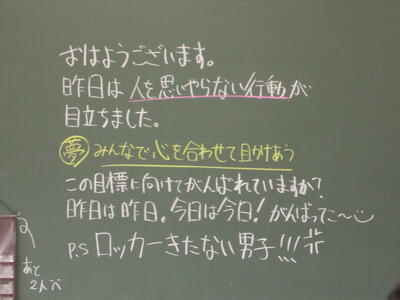 おはようございます。
昨日は人を思いやらない行動が
目立ちました。
夢 みんなで心を合わせて助けあう
この目標に向けてがんばれていますか?
昨日は昨日。今日は今日!がんばってこ〜
P.S ロッカーきたない男子!!!
あと
2人